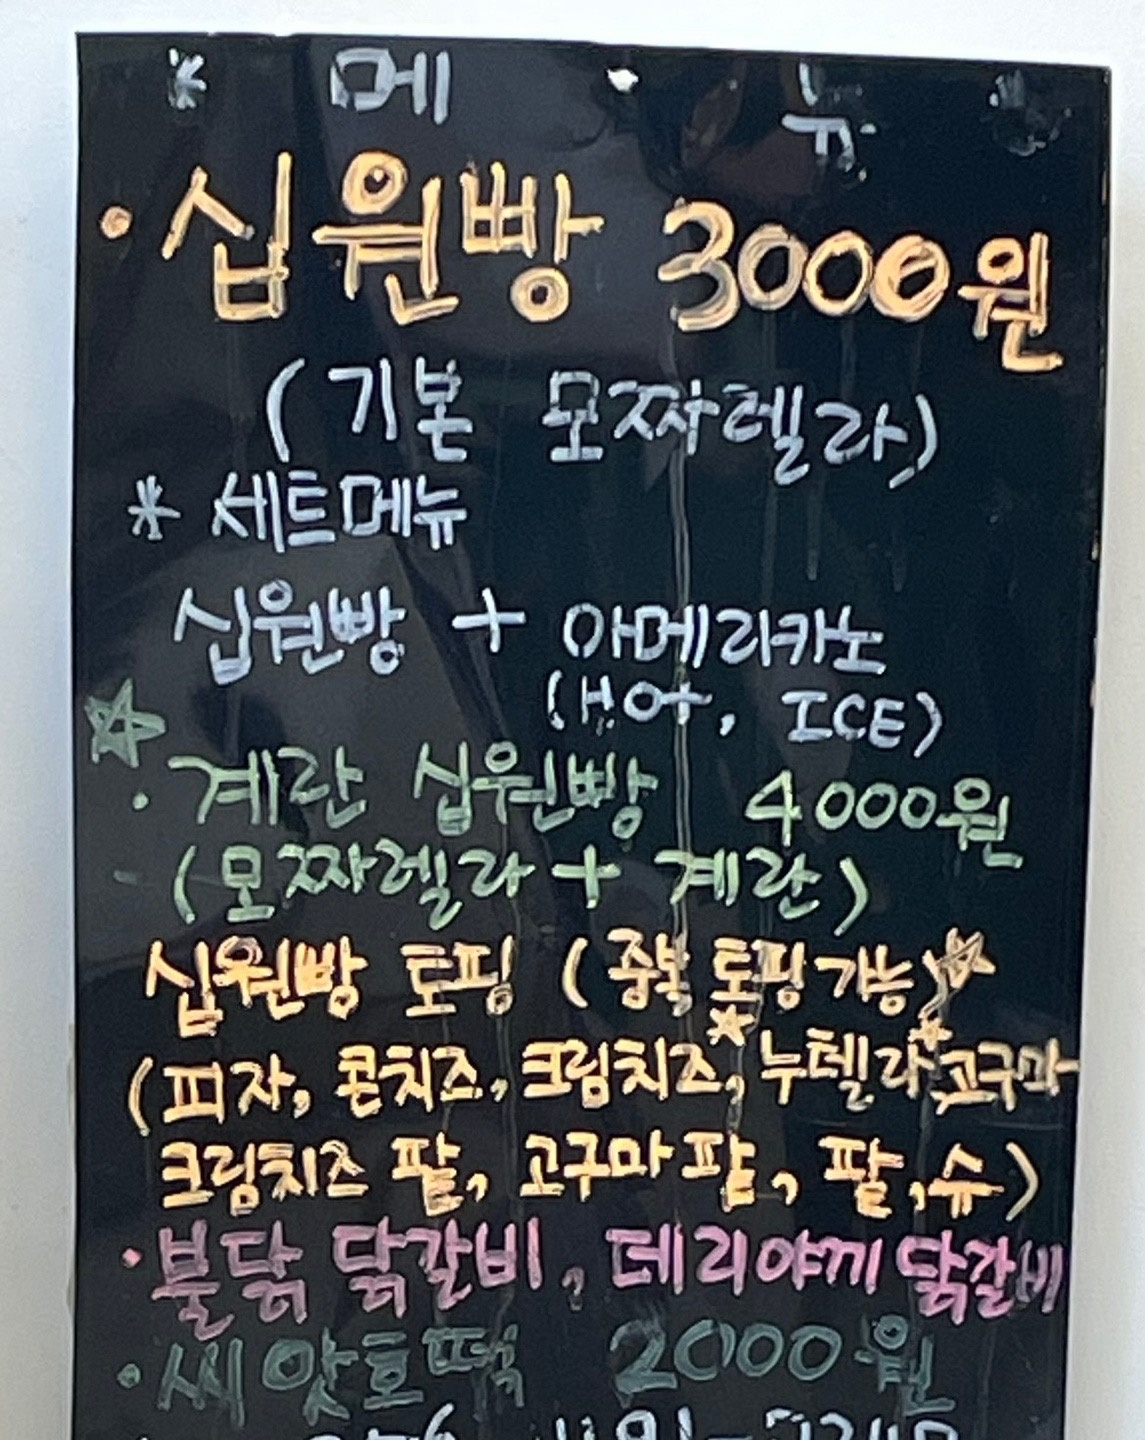 * 메 뉴 *
· 십원빵 3000원
( 기본 모짜렐라)
* 세트메뉴
십원빵 + 아메리카노
(HOt, ICE)
☆
· 계란 십원빵 4000원
(모짜렐라 + 계란)
십원빵 토핑 ( 중복 토핑 가능)☆
(피자, 콘치즈, 크림치즈,☆ 누텔라☆ 고구마
크림치즈 팥, 고구마 팥, 팥, 슈)
· 불닭 닭갈비, 데리야끼 닭갈비
· 씨앗호떡 2000원